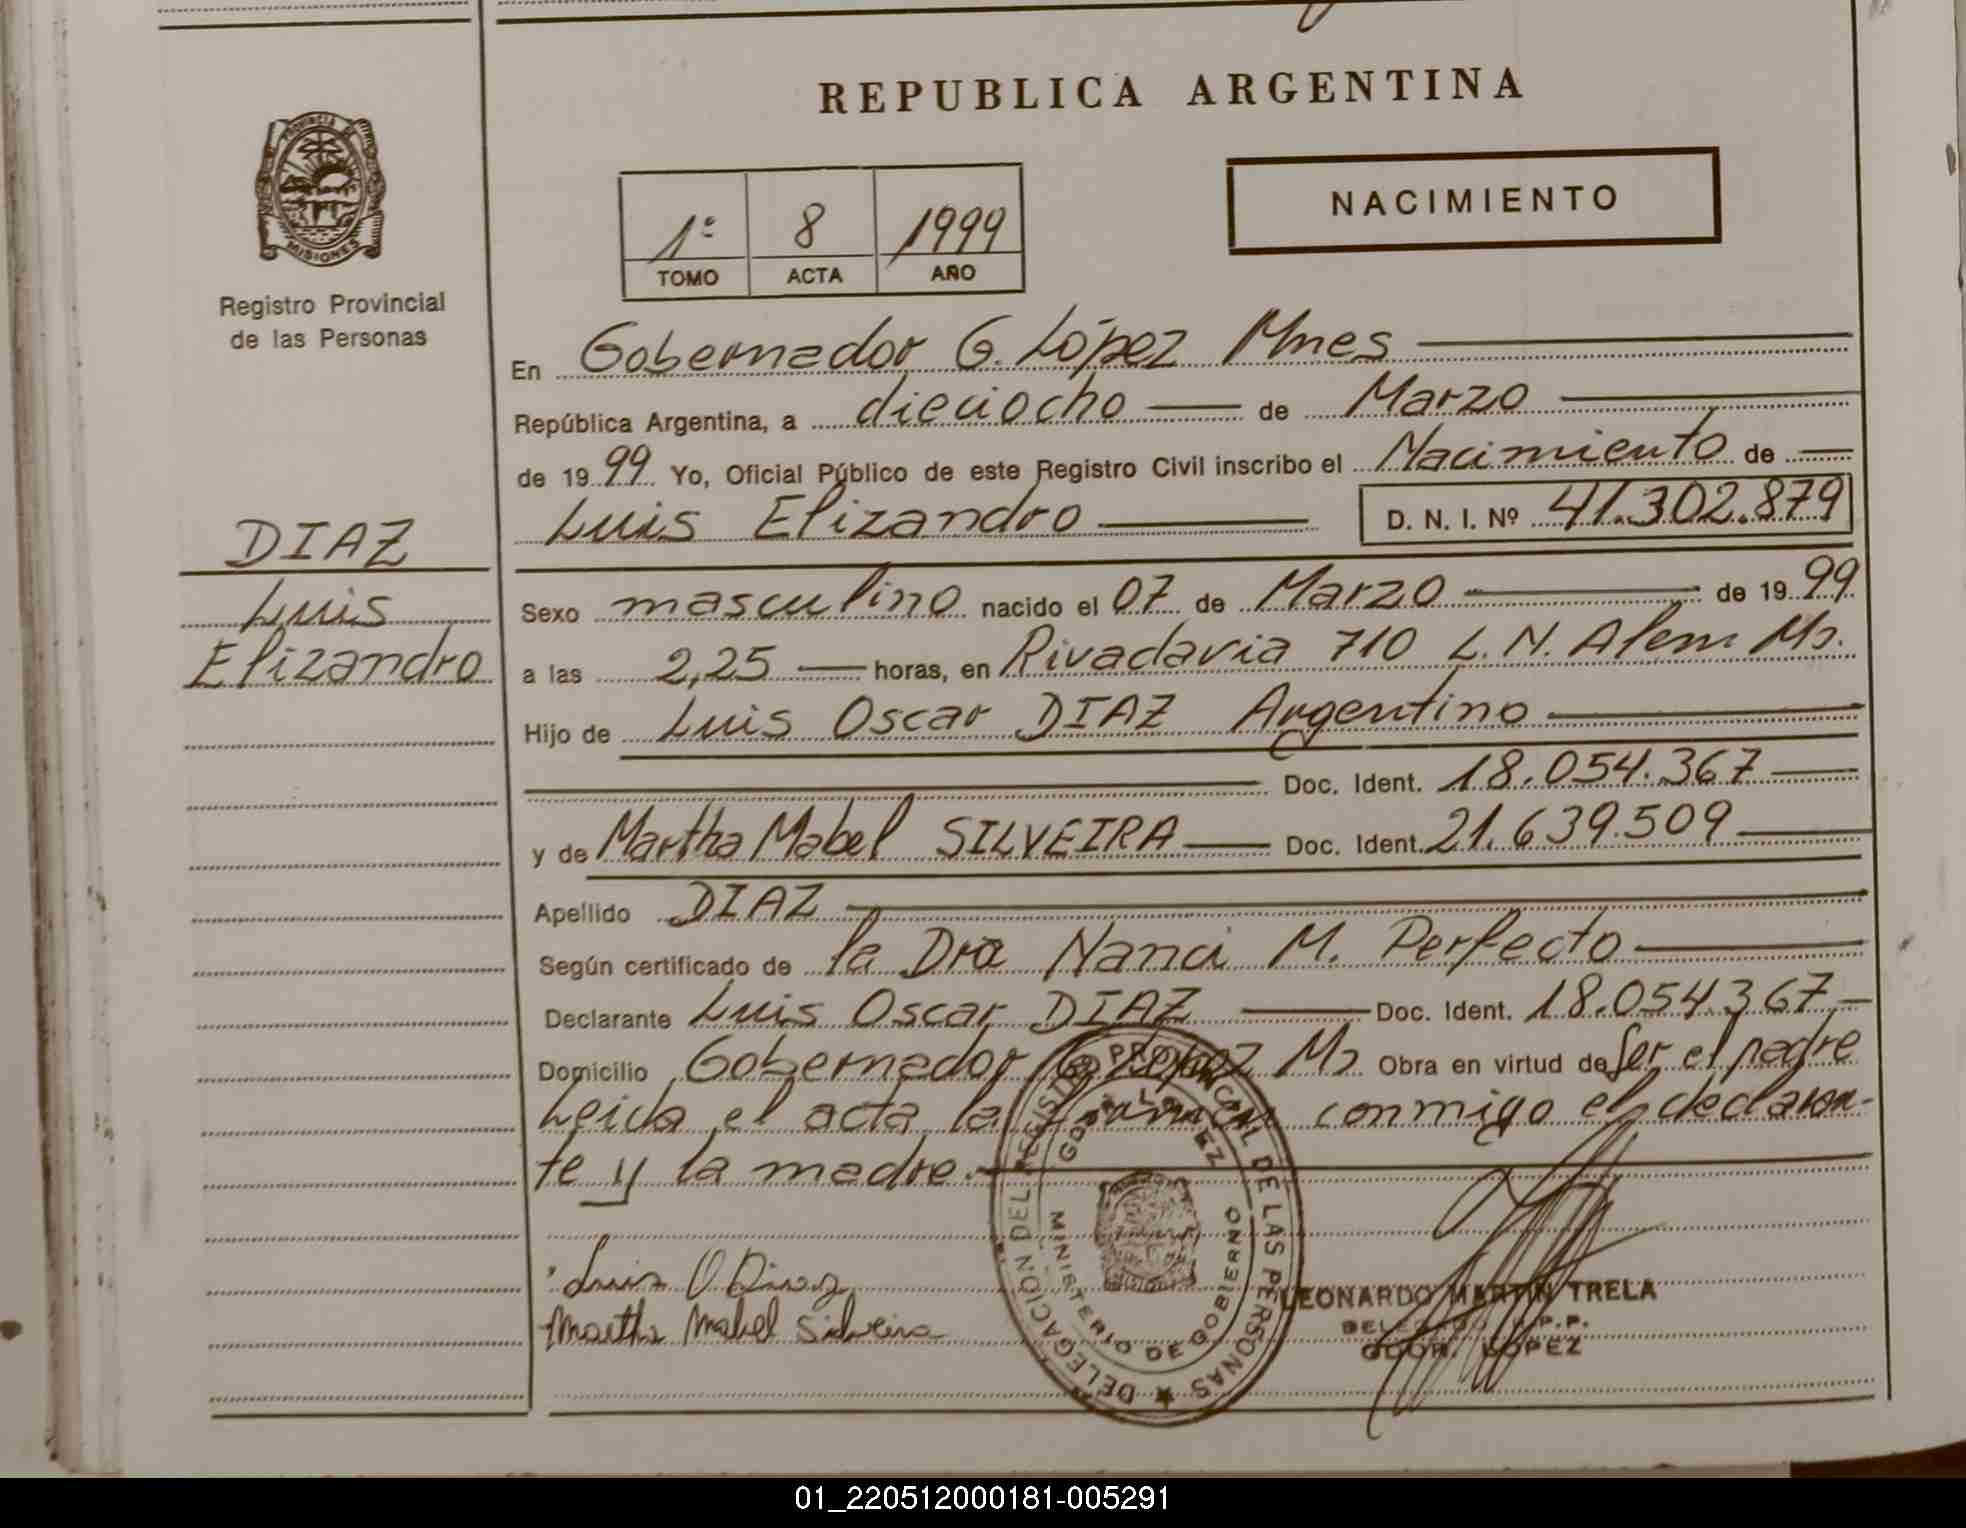 REPUBLICA ARGENTINA
PROVINCIA DE
MISIONES
Registro Provincial
de las Personas
NACIMIENTO
1º 8 1999
TOMO ACTA AÑO
En Gobernador G. López Mnes
República Argentina, a dieciocho de Marzo
de 1999 Yo, Oficial Público de este Registro Civil inscribo el Nacimiento de
Luis Elizandro D. N. I. Nº 41.302.879
DIAZ
Luis
Elizandro
Sexo masculino nacido el 07 de Marzo de 1999
a las 2,25 horas, en Rivadavia 710 L. N. Alem Ms.
Hijo de Luis Oscar DIAZ Argentino
Doc. Ident. 18.054.367
y de Martha Mabel SILVEIRA Doc. Ident. 21.639.509
Apellido DIAZ
Según certificado de la Dra Nanci M. Perfecto
Declarante Luis Oscar DIAZ Doc. Ident. 18.054.367
Domicilio Gobernador G. López Ms Obra en virtud de Ser el padre
Leida el acta la firman conmigo el declaran-
te y la madre.
Luis O Diaz
Martha Mabel Silveira
DELEGACION DEL REGISTRO PROVINCIAL DE LAS PERSONAS
GDOR. LOPEZ
MINISTERIO DE GOBIERNO
LEONARDO MARTIN TRELA
GDOR. LOPEZ
01_220512000181-005291